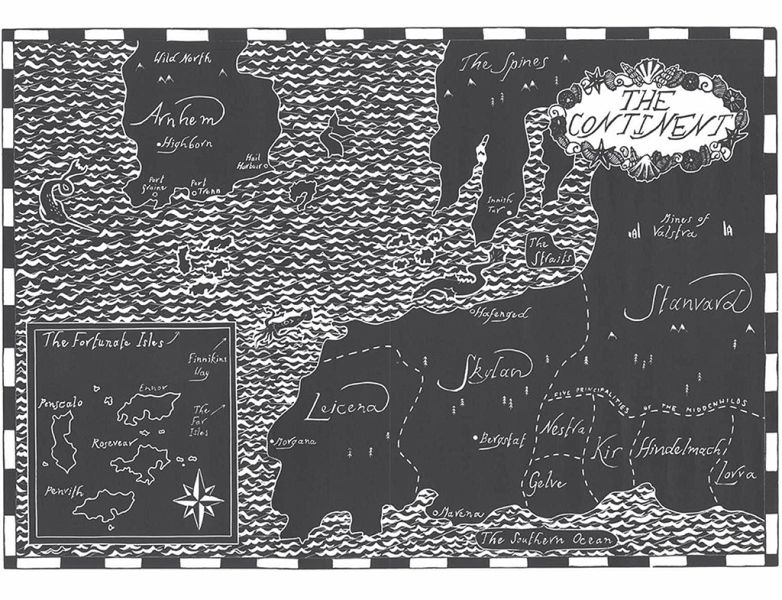 Wild North
Arnhem
Highborn
Hail
Harbour
Port
Port
Trenn
The Spines
THE
CONTINENT
Innish
Tar
The
Straits
Mines of
Valstra
Stanvard
Hafenged
Skulan
Leicena
Morgana
Bergstat
Mavena
FIVE PRINCIPALITIES OF THE MIDDENWILDS
Nestra
Kir
Hindelmach
Lovra
Gelve
The Southern Ocean
The Fortunate Isles
Finnikins
Way
Ennor
The
Far
Isles
Penscalo
Rosevear
Penrith